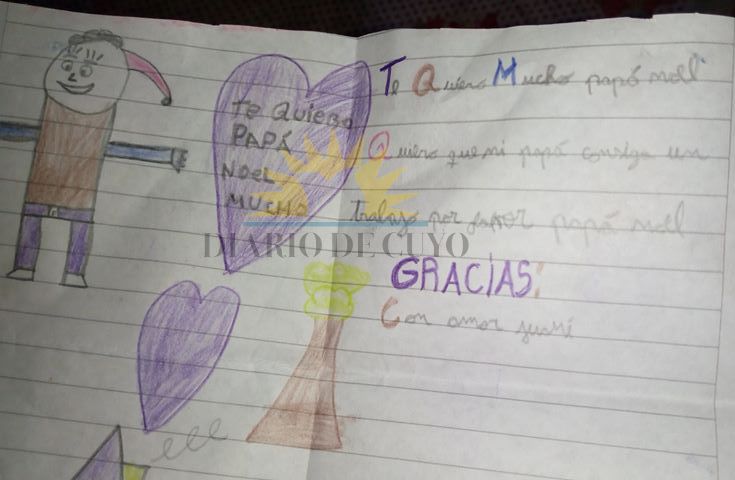 Te Quiero
PAPÁ
NOEL
MUCHO
Te Quiero Mucho papá noel
Quiero que mi papá consiga un
trabajo por favor papá noel
GRACIAS
Con amor
DIARIO DE CUYO
eee